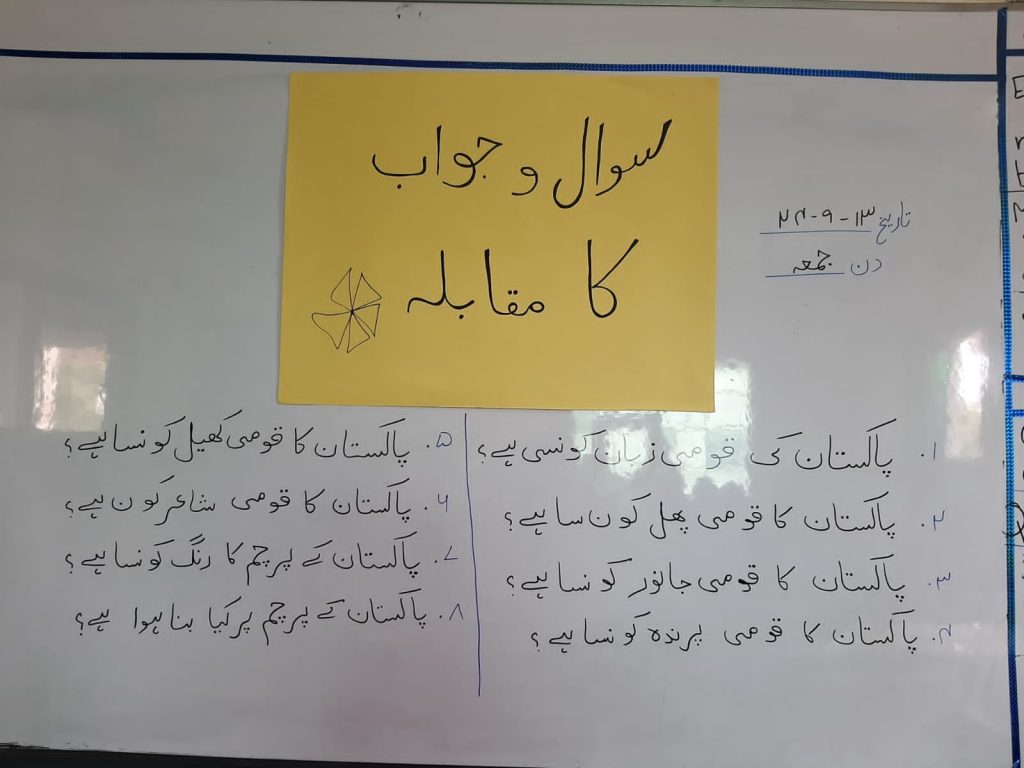 سوال و جواب
کا مقابلہ
تاریخ ۱۳-۹-۲۴
دن جمعہ
۱. پاکستان کی قومی زبان کونسی ہے؟
۲. پاکستان کا قومی پھل کون سا ہے؟
۳. پاکستان کا قومی جانور کونسا ہے؟
۴. پاکستان کا قومی پرندہ کونسا ہے؟
۵. پاکستان کا قومی کھیل کونسا ہے؟
۶. پاکستان کا قومی شاعر کون ہے؟
۷. پاکستان کے پرچم کا رنگ کونسا ہے؟
۸. پاکستان کے پرچم پر کیا بنا ہوا ہے؟